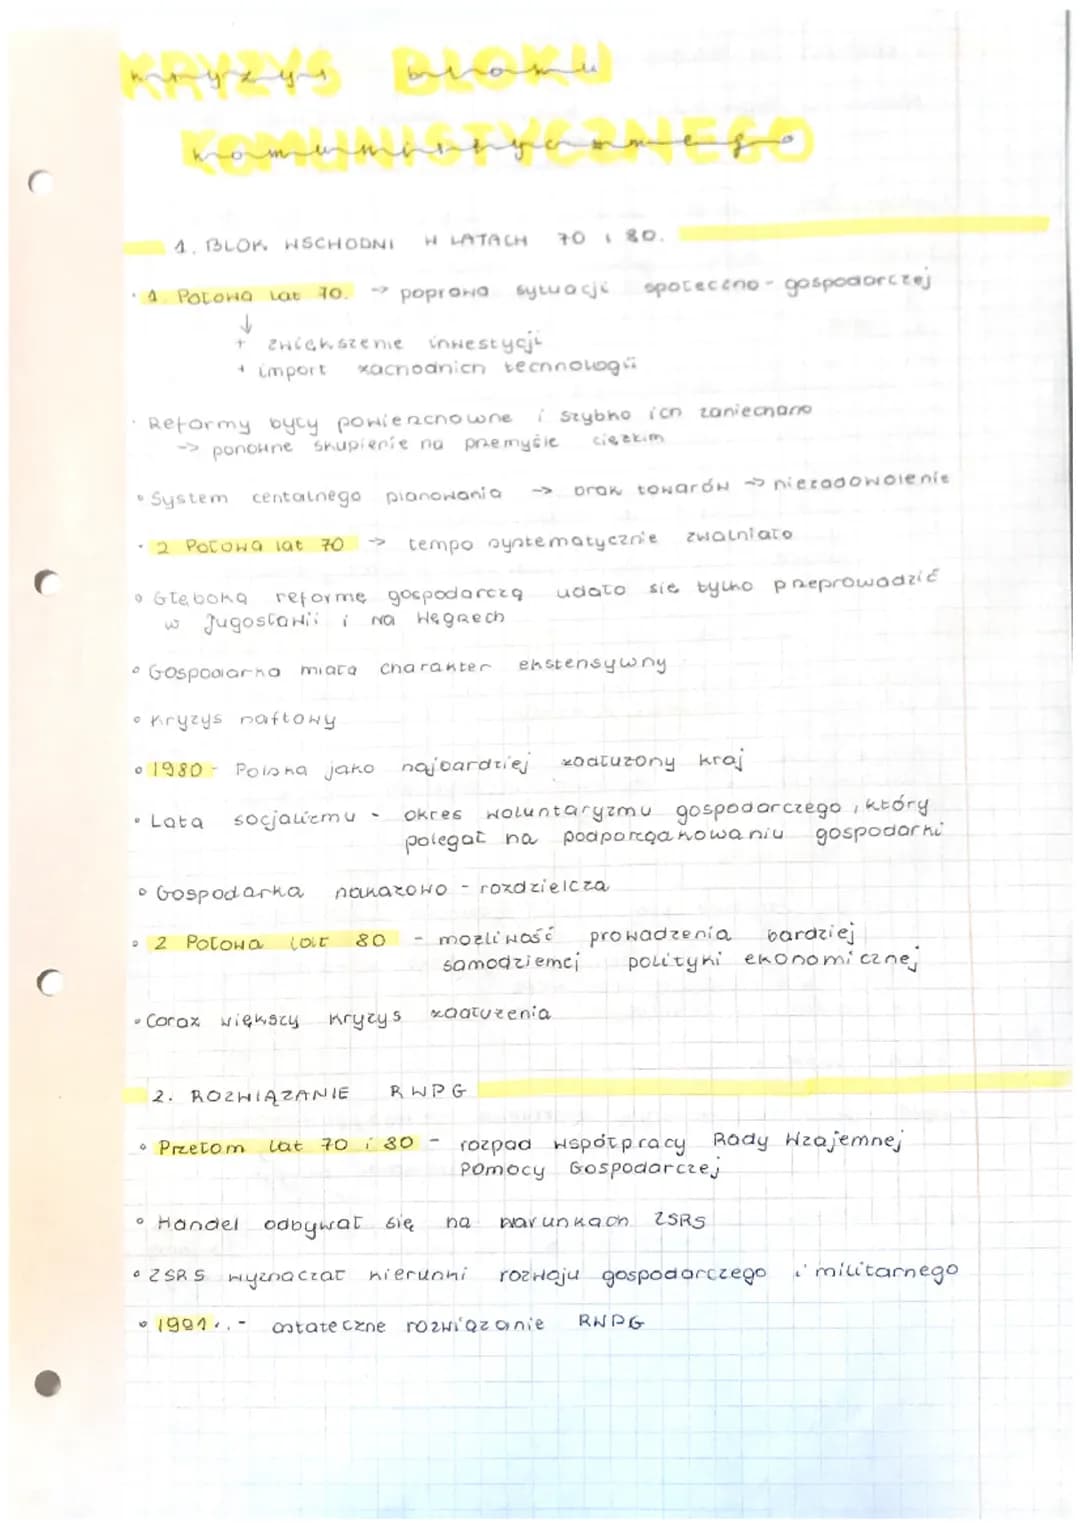 KRYZYS BLOKU
kryzys bloku
KOMUNISTYCZNEGO
komunistycznego
1. BLOK WSCHODNI W LATACH 70 i 80.
• 1. Połowa lat 70. → poprawa sytuacji społeczno - gospodarczej
↓
+ zwiększenie inwestycji
+ import zachodnich technologii
• Reformy były powierzchowne i szybko ich zaniechano
→ ponowne skupienie na przemyśle ciężkim
• System centalnego planowania → brak towarów → niezadowolenie
• 2 Połowa lat 70 → tempo systematycznie zwalniało
• Głęboką reformę gospodarczą udało się tylko przeprowadzić
w Jugosławii i na Węgrzech
• Gospodarka miała charakter ekstensywny
• Kryzys naftowy
• 1980 - Polska jako najbardziej zadłużony kraj
• Lata socjalizmu - okres woluntaryzmu gospodarczego, który
polegał na podporządkowaniu gospodarki
• Gospodarka nakazowo - rozdzielcza
• 2 Połowa lat 80 - możliwość prowadzenia bardziej
samodzielnej polityki ekonomicznej
• Coraz większy kryzys zadłużenia
2. ROZWIĄZANIE RWPG
• Przełom lat 70 i 80 - rozpad współpracy Rady Wzajemnej
Pomocy Gospodarczej
• Handel odbywał się na warunkach ZSRS
• ZSRS wyznaczał kierunki rozwoju gospodarczego i militarnego
• 1991r. - ostateczne rozwiązanie RWPG